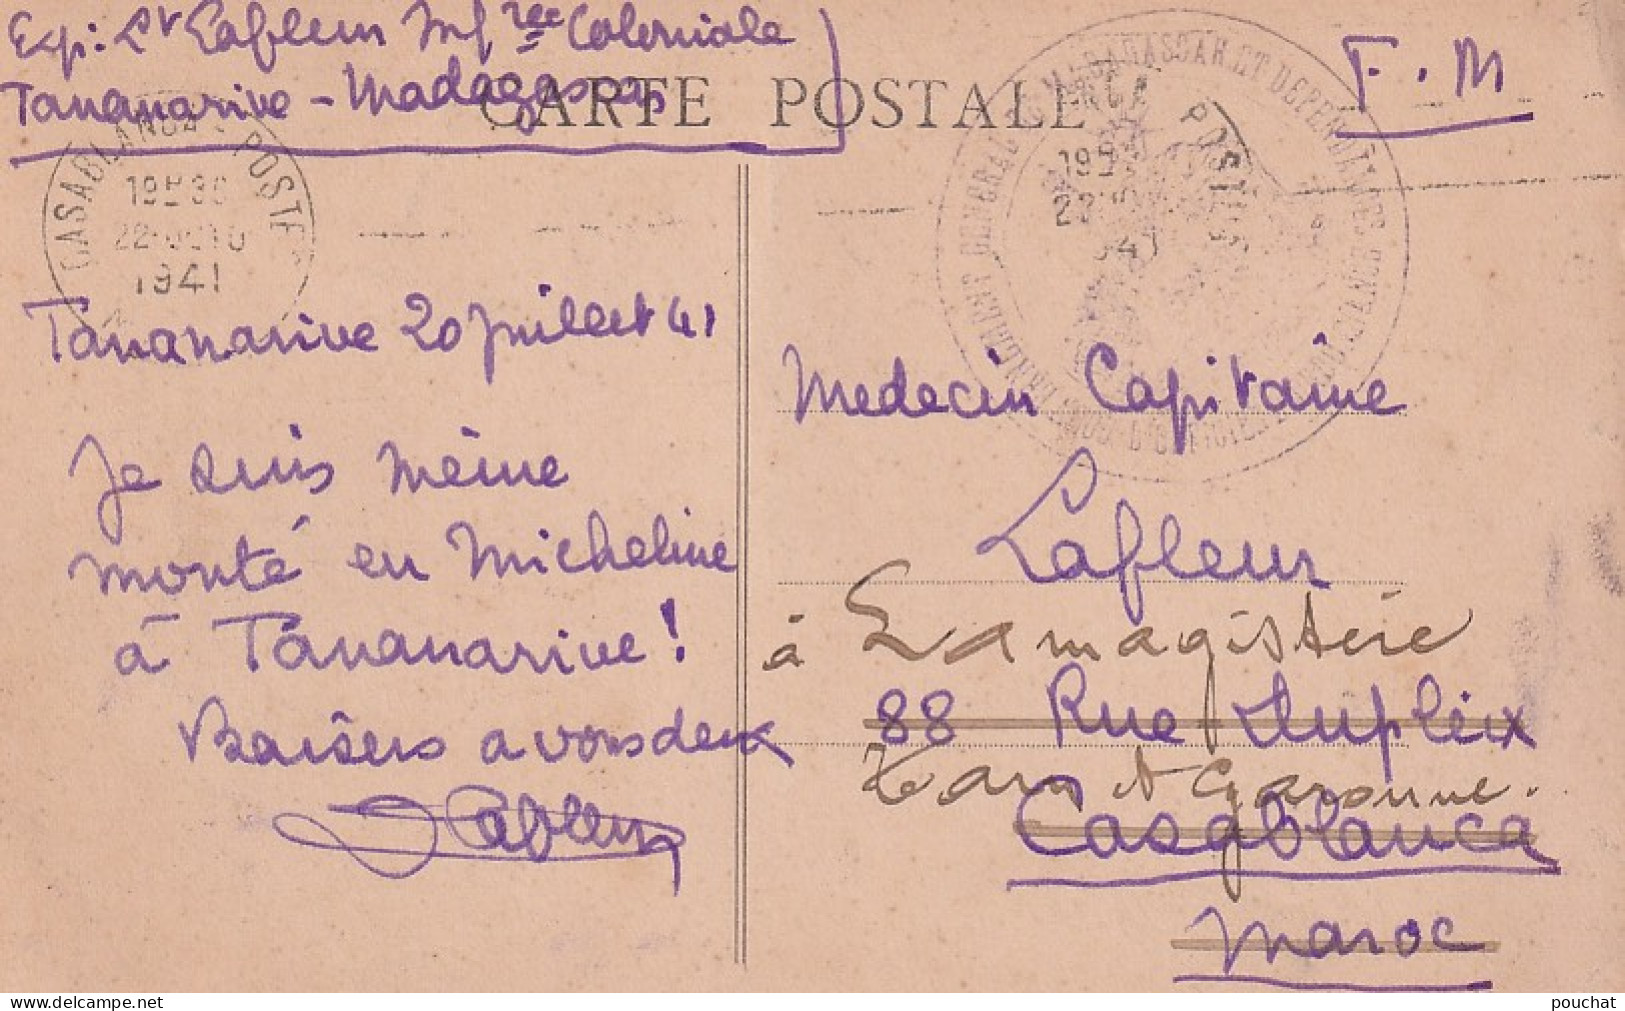 Exp: Lt Lafleur Infrie Coloniale
Tananarive - Madagascar
CARTE POSTALE
F.M
CASABLANCA - POSTE
19H30
22-
1941
POSTES
Tananarive 20 Juillet 41
Je suis même
monté en Micheline
à Tananarive!
Baisers a vous deux
Lafleur
Medecin Capitaine
Lafleur
à Lamagistère
88 Rue Dupleix
Tarn et Garonne.
Casablanca
Maroc
delcampe.net
pouchat